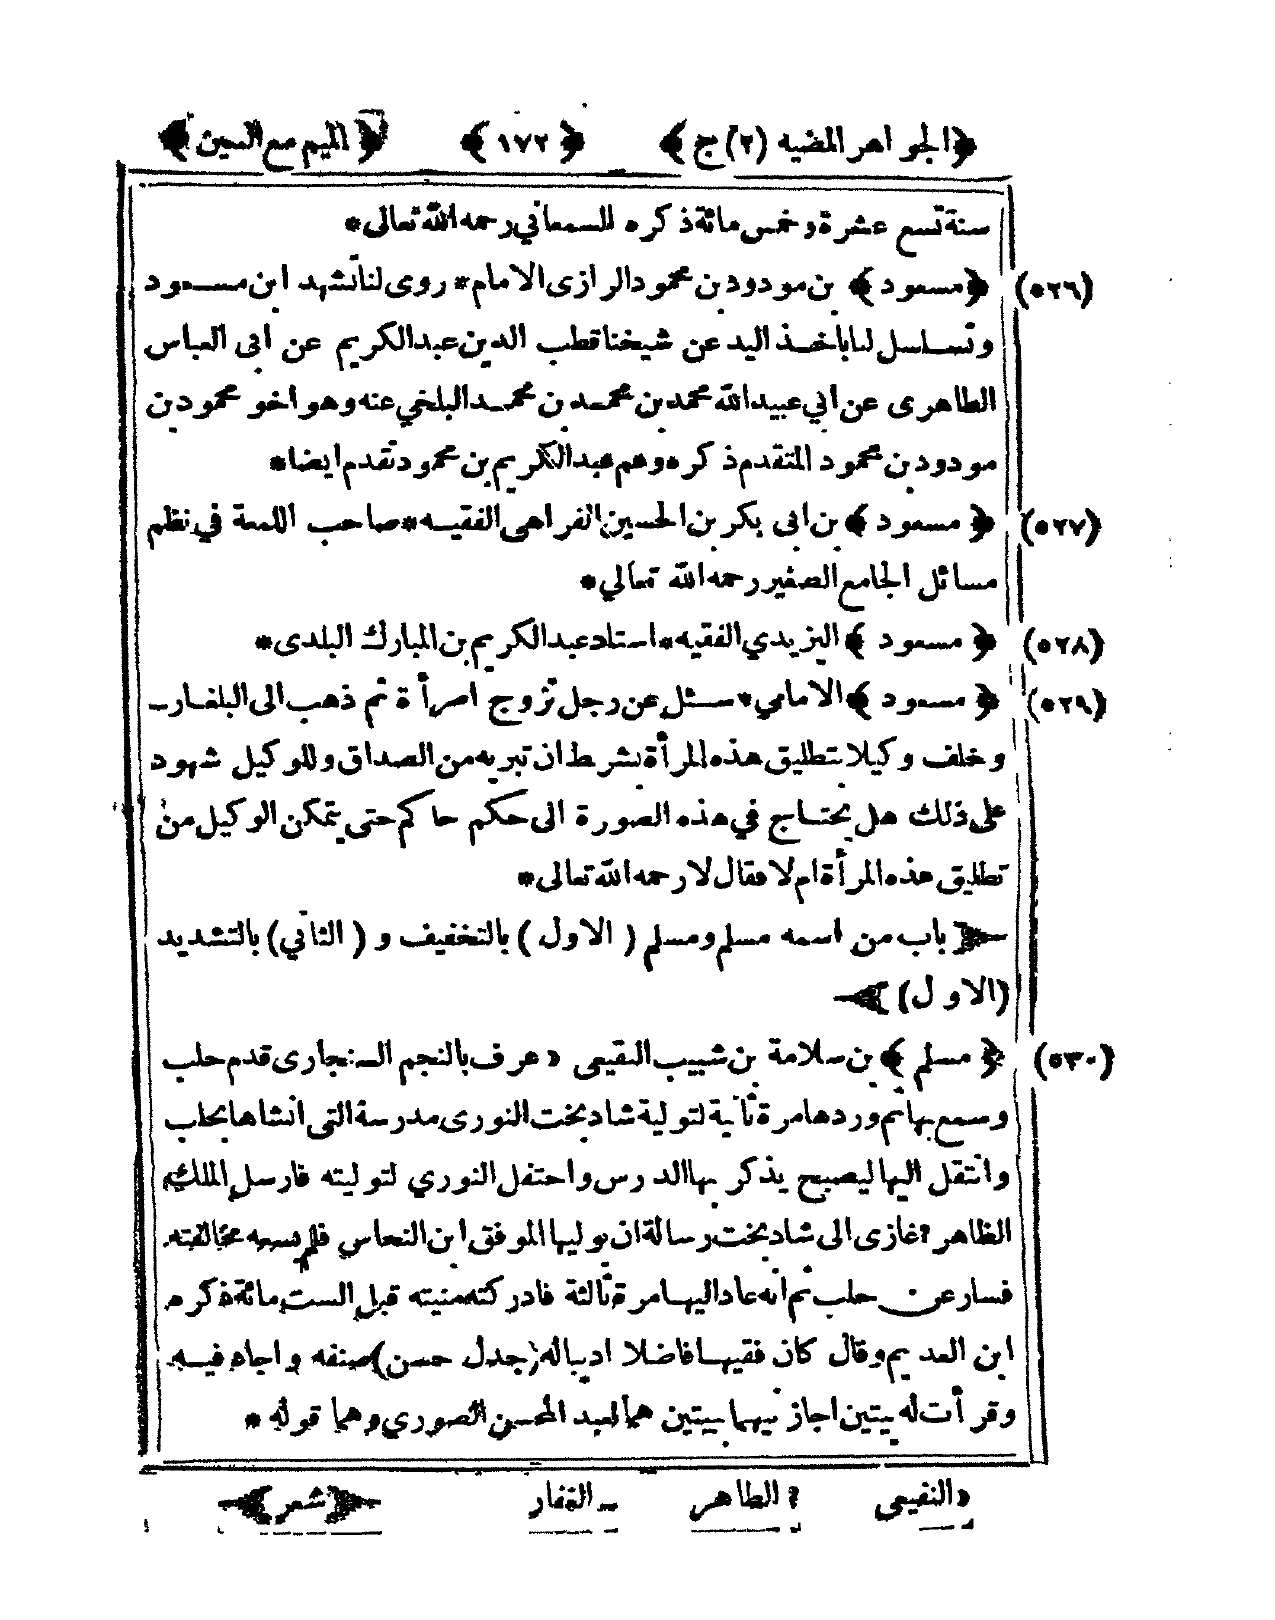 ﴿الجواهر المضيه (٢) ج﴾ ﴿١٧٢﴾ ﴿الميم مع السين﴾
سنة تسع عشرة وخمس مائة ذكره السمعاني رحمه الله تعالى *
(٥٢٦) ﴿مسعود﴾ بن مودود بن محمود الرازى الامام * روى لنا تشهد ابن مسعود
وتسلسل لنا باخذ اليد عن شيخنا قطب الدين عبد الكريم عن ابى العباس
الطاهرى عن ابي عبيد الله محمد بن محمد بن محمد البلخي عنه وهو اخو محمود بن
مودود بن محمود المتقدم ذكره وعم عبد الكريم بن محمود تقدم ايضا *
(٥٢٧) ﴿مسعود﴾ بن ابى بكر بن الحسين الفراهى الفقيه * صاحب اللمعة في نظم
مسائل الجامع الصغير رحمه الله تعالي *
(٥٢٨) ﴿مسعود﴾ اليزيدي الفقيه * استاد عبد الكريم بن المبارك البلدى *
(٥٢٩) ﴿مسعود﴾ الامامي * سئل عن رجل تزوج امرأة ثم ذهب الى البلغار
وخلف وكيلا بتطليق هذه المرأة بشرط ان تبريه من الصداق وللوكيل شهود
على ذلك هل يحتاج في هذه الصورة الى حكم حاكم حتى يتمكن الوكيل من
تطليق هذه المرأة ام لا فقال لا رحمه الله تعالى *
باب من اسمه مسلم ومسلم (الاول) بالتخفيف و (الثاني) بالتشديد
(الاول)
(٥٣٠) ﴿مسلم﴾ بن سلامة بن شبيب النقيعى « عرف بالنجم السنجارى قدم حلب
وسمع بها ثم وردها مرة ثانية لتولية شاد بخت النورى مدرسة التى انشاها بحلب
وانتقل اليها ليصبح يذكر بها الدرس واحتفل النوري لتوليته فارسل الملك
الظاهر ؟ غازى الى شاد بخت رسالة ان يوليها الموفق ابن النحاس فلم يسعه مخالفته
فسار عن حلب ثم انه عاد اليها مرة ثالثة فادركته منيته قبل الست مائة ذكره
ابن العديم وقال كان فقيها فاضلا اديبا له (جدل حسن) صنفه واجاد فيه
وقرأت له بيتين اجاز بيهما ببيتين هما لعبد المحسن الصوري وهما قوله *
« النفيعى ؟ الطاهر ـ الغفار ﴿شعر﴾